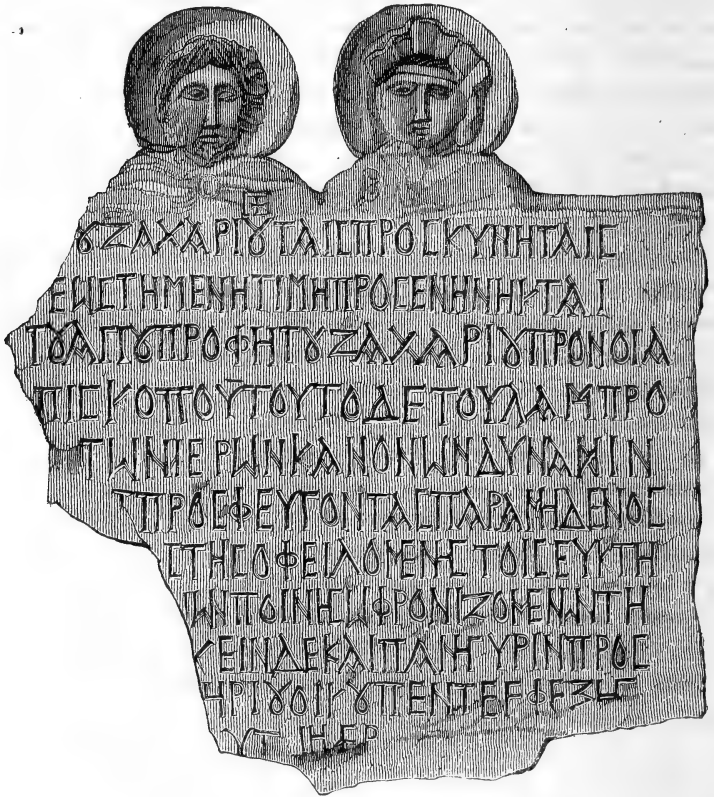 ȣΖΑΧΑΡΙȣΤΑΙCΠΡΟCΚΥΝΗΤΑΙC
ΕωCΤΗΜΕΝΗΤΙΜΗΠΡΟCΕΝΗΝΗΚΤΑΙ
ΤȣΑΓΙȣΠΡΟΦΗΤȣΖΑΧΑΡΙȣΠΡΟΝΟΙΑ
ΠΙCΚΟΠΟΥΤΟΥΤΟΔΕΤΟΥΛΑΜΠΡΟ
ΤωΝΙΕΡωΝΚΑΝΟΝωΝΔΥΝΑΜΙΝ
ΠΡΟCΦΕΥΓΟΝΤΑCΠΑΡΑΜΗΔΕΝΟC
CΤΗCΟΦΕΙΛΟΜΕΝΗCΤΟΙCΕΥΚΤΗ
ωΝΠΟΙΝΗCωΦΡΟΝΙΖΟΜΕΝωΝΤΗ
ΚΕΙΝΔΕΚΑΙΠΑΝΗΓΥΡΙΝΠΡΟC
ΗΡΙȣΟΙΚȣΠΕΝΤΕΕΦΕΞΗC